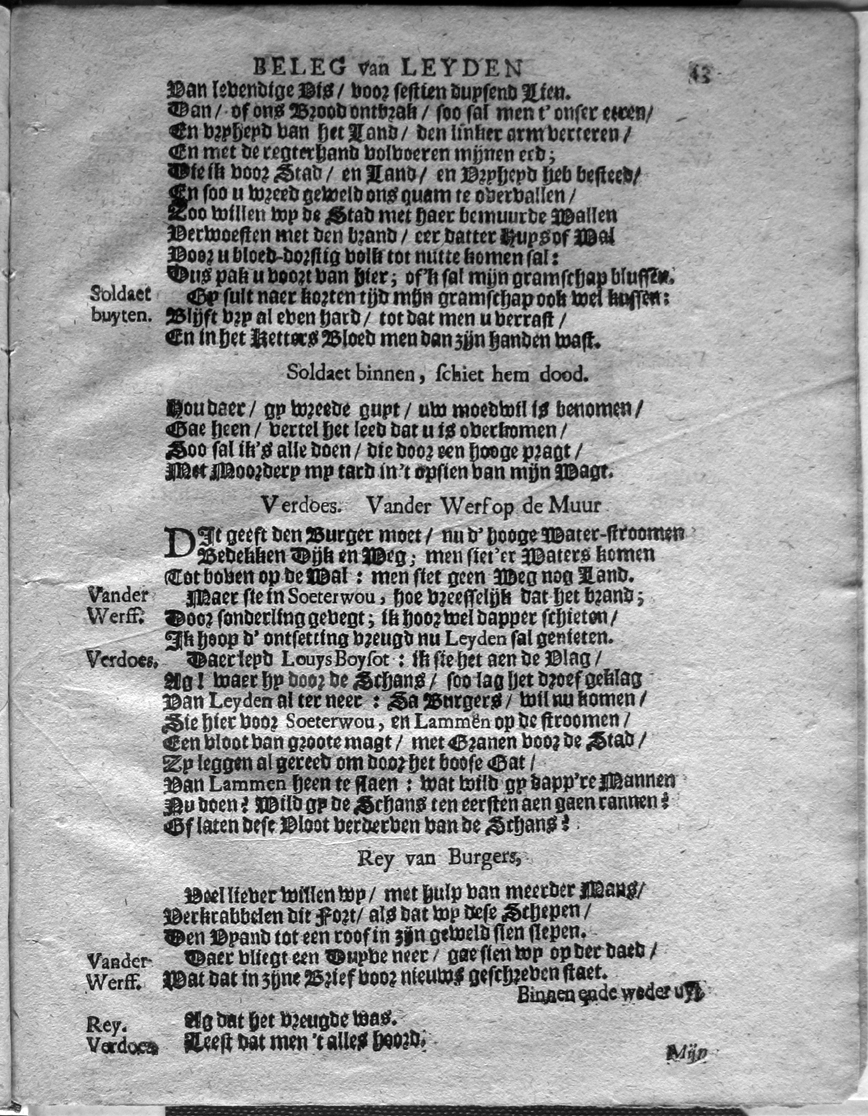 BELEG van LEYDEN 43
Van levendige Vis / voor sestien duysend Lien.
Dan / of ons Brood ontbrak / soo sal men t'onser eeren /
En vryheyd van het Land / den linker arm verteren /
En met de regterhand volvoeren mijnen eed;
Die ik voor Stad / en Land / en Vryheyd heb besteed /
En soo u wreed geweld ons quam te overvallen /
Zoo willen wy de Stad met haer bemuurde Wallen
Verwoesten met den brand / eer datter Huys of Wal
Voor u bloed-dorstig volk tot nutte komen sal:
Dus pak u voort van hier; of'k sal mijn gramschap blussen.
Soldaet Gy sult naer korten tijd mijn gramschap ook wel kussen:
buyten. Blijft vry al even hard / tot dat men u verrast /
En in het Ketters Bloed men dan zijn handen wast.
Soldaet binnen, schiet hem dood.
Hou daer / gy wreede guyt / uw moedwil is benomen /
Gae heen / vertel het leed dat u is overkomen /
Soo sal ik's alle doen / die door een hooge pragt /
Met Moordery my tard in't opsien van mijn Wagt.
Verdoes. Vander Werf op de Muur
DIt geeft den Burger moet / nu d'hooge Water-stroomen
Bedekken Dijk en Weg; men siet'er Waters komen
Tot boven op de Wal: men siet geen Weg nog Land.
Vander Maer sie in Soeterwou, hoe vreesselijk dat het brand;
Werff. Door sonderling gevegt; ik hoor wel dapper schieten /
Ik hoop d'ontsetting vreugd nu Leyden sal genieten.
Verdoes. Daer leyd Louys Boysot: ik sie het aen de Vlag /
Ag! waer hy door de Schans / soo lag het droef geklag
Van Leyden al ter neer: Sa Burgers / wil nu komen /
Sie hier voor Soeterwou, en Lammen op de stroomen /
Een vloot van groote magt / met Granen voor de Stad /
Zy leggen al gereed om door het boose Gat /
Van Lammen heen te slaen: wat wild gy dapp're Mannen
Nu doen? Wild gy de Schans ten eersten aen gaen rannen?
Of laten dese Vloot verderven van de Schans?
Rey van Burgers,
Veel liever willen wy / met hulp van meerder Mans /
Verkrabbelen dit Fort / als dat wy dese Schepen /
Den Vyand tot een roof in zijn geweld sien slepen.
Vander- Daer vliegt een Duyve neer / gae sien wy op der daed /
Werff. Wat dat in zijne Brief voor nieuws geschreven staet.
Binnen ende weder uyt.
Rey. Ag dat het vreugde was.
Verdoes Leest dat men 't alles hoord.
Mijn